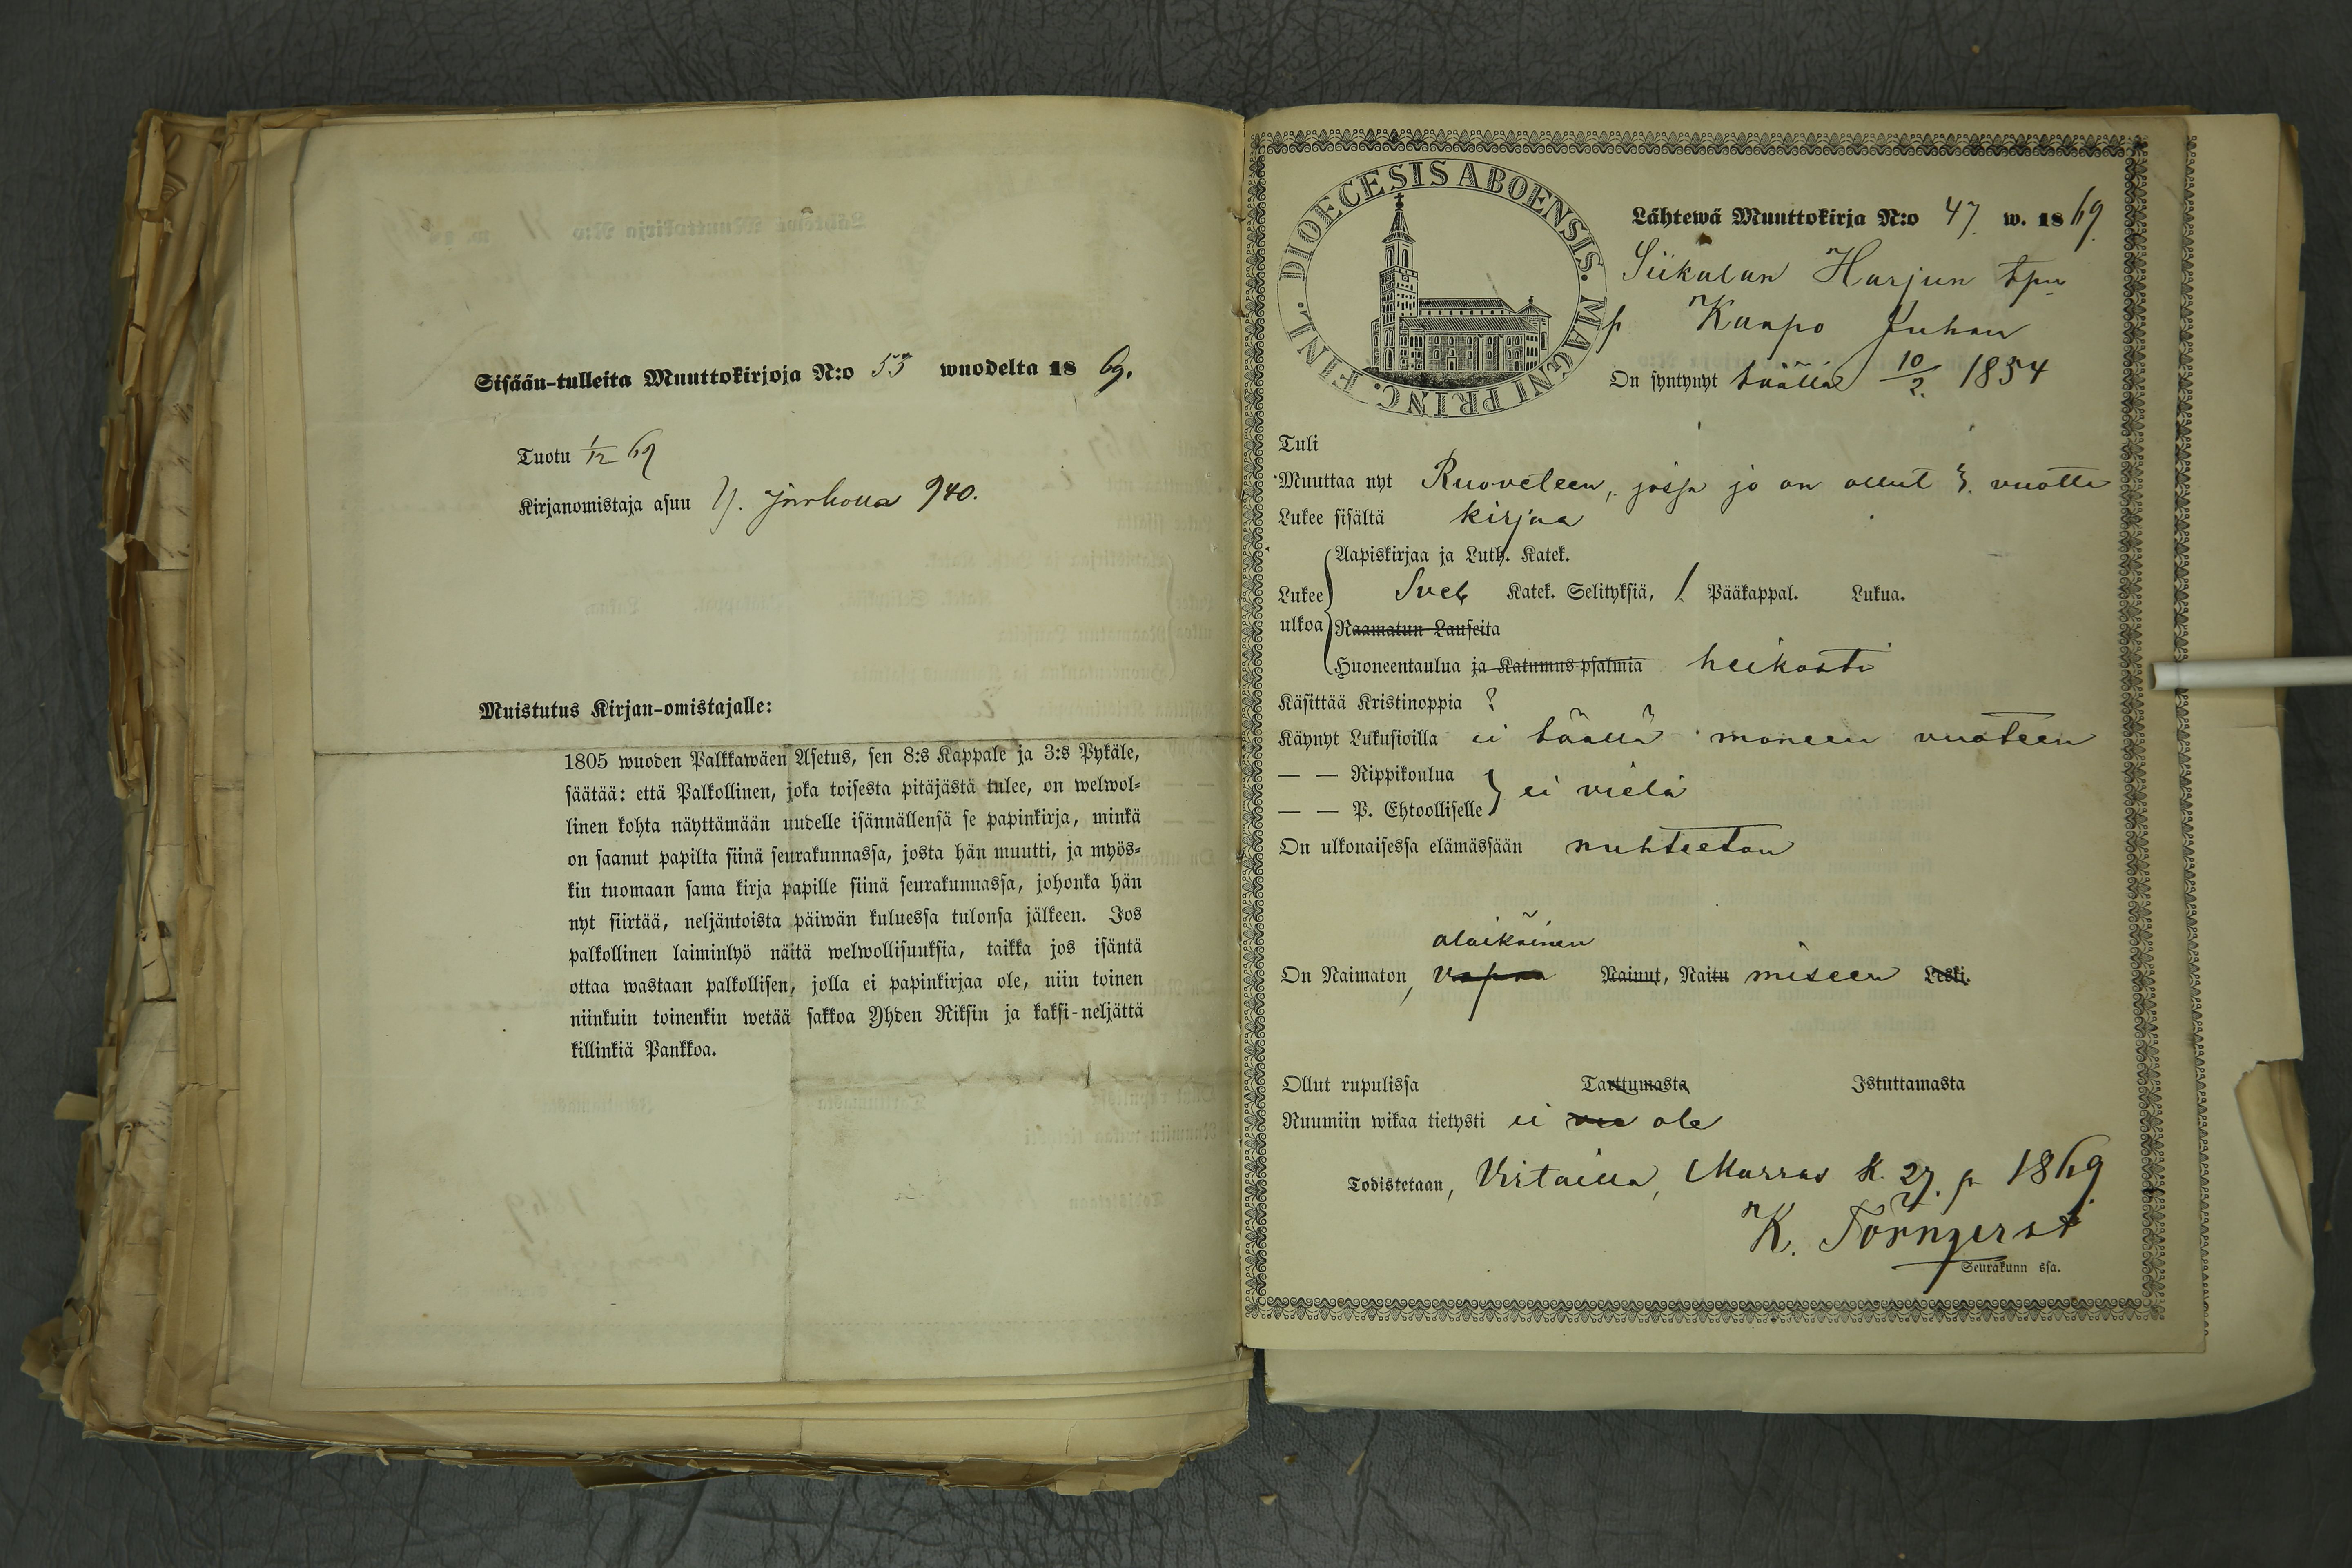 Sisään-tulleita Muuttokirjoja N:o 55 wuodelta 1869.
Tuotu 1/12 69
Kirjanomistaja asuu 940.
Muistutus Kirjan-omistajalle:
1805 wuoden Palkkawäen Asetus, sen 8:s Kappale ja 3:s Pykäle,
säätää: että Palkollinen, joka toisesta pitäjästä tulee, on welwol-
linen kohta näyttämään uudelle isännällensä se papinkirja, minkä
on saanut papilta siinä seurakunnassa, josta hän muutti, ja myös-
kin tuomaan sama kirja papille siinä seurakunnassa, johonka hän
nyt siirtää, neljäntoista päiwän kuluessa tulonsa jälkeen. Jos
palkollinen laiminlyö näitä welwollisuuksia, taikka jos isäntä
ottaa wastaan palkollisen, jolla ei papinkirjaa ole, niin toinen
niinkuin toinenkin wetää sakkoa Yhden Riksin ja kaksi-neljättä
killinkiä Pankkoa.
DIOECESIS ABOENSIS. MAGNI PRINC. FINL.
Lähtewä Muuttokirja N:o 47 w. 1869.
Siikalan Harjun tpn
p Kaapo Juhan
On syntynyt täällä 10/2. 1854
Tuli
Muuttaa nyt Ruoveteen, jossa jo on ollut 3. vuotta
Lukee sisältä kirjaa
Lukee ulkoa
Aapiskirjaa ja Luth. Katek.
Sveb Katek. Selityksiä, 1. Pääkappal. Lukua.
Raamatun Lauseita
Huoneentaulua ja Katumus psalmia heikosti
Käsittää Kristinoppia ?
Käynyt Lukusioilla ei täällä moneen vuoteen
— — Rippikoulua
— — P. Ehtoolliselle } ei vielä
On ulkonaisessa elämässään nuhteeton
alaikäinen
On Naimaton, vapaa Nainut, Naitu miseen Leski.
Ollut rupulissa Tarttumasta Istuttamasta
Ruumiin wikaa tietysti ei ole
Todistetaan, Virtailla, Marras K. 27. p 1869
K. Törnqvist
Seurakunn ssa.